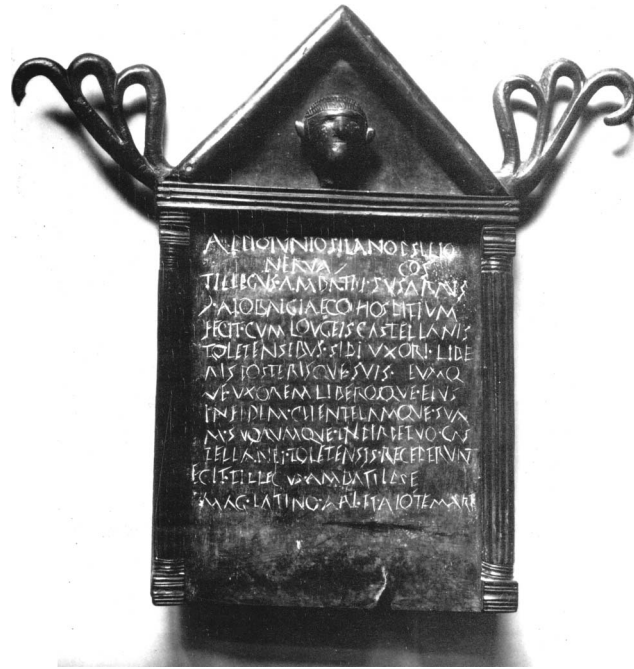 APPIO IVNIO SILANO P SILIO
NERVA COS
TILLEGVS·AMBATI·F·SVSARRVS
Ɔ·AIOBAIGIAECO·HOSPITIVM
FECIT·CVM LOVGEIS CASTELLANIS
TOLETENSIBVS·SIBI VXORI·LIBE
RIS POSTERISQVE·SVIS· EVMQ
VE VXOREM LIBEROSQVE·EIVS
IN FIDEM·CLIENTELAMQVE·SVA
M·SVORVMQVE·IN PERPETVO·CAS
TELLANEI·TOLETENSIS·RECEPERVNT
EGIT·TILLEGVS·AMBATI IPSE
MAG·LATINO·ARI·ET AIO TEMARI